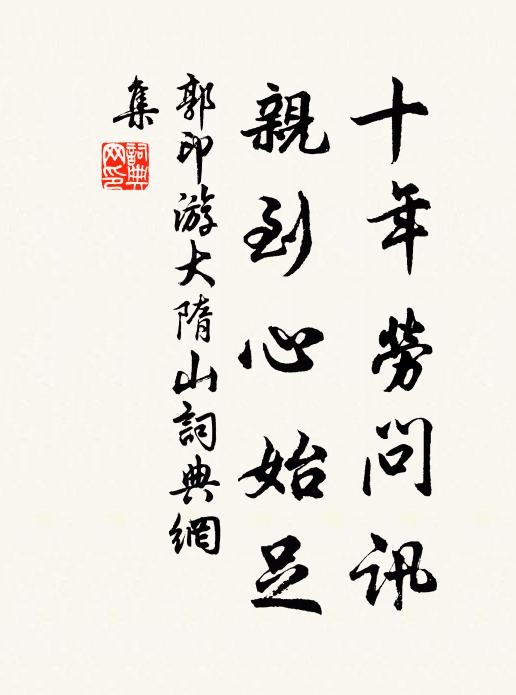 十年勞問訊
親到心始足
郭印游大隋山詞典網
集
詞典网印